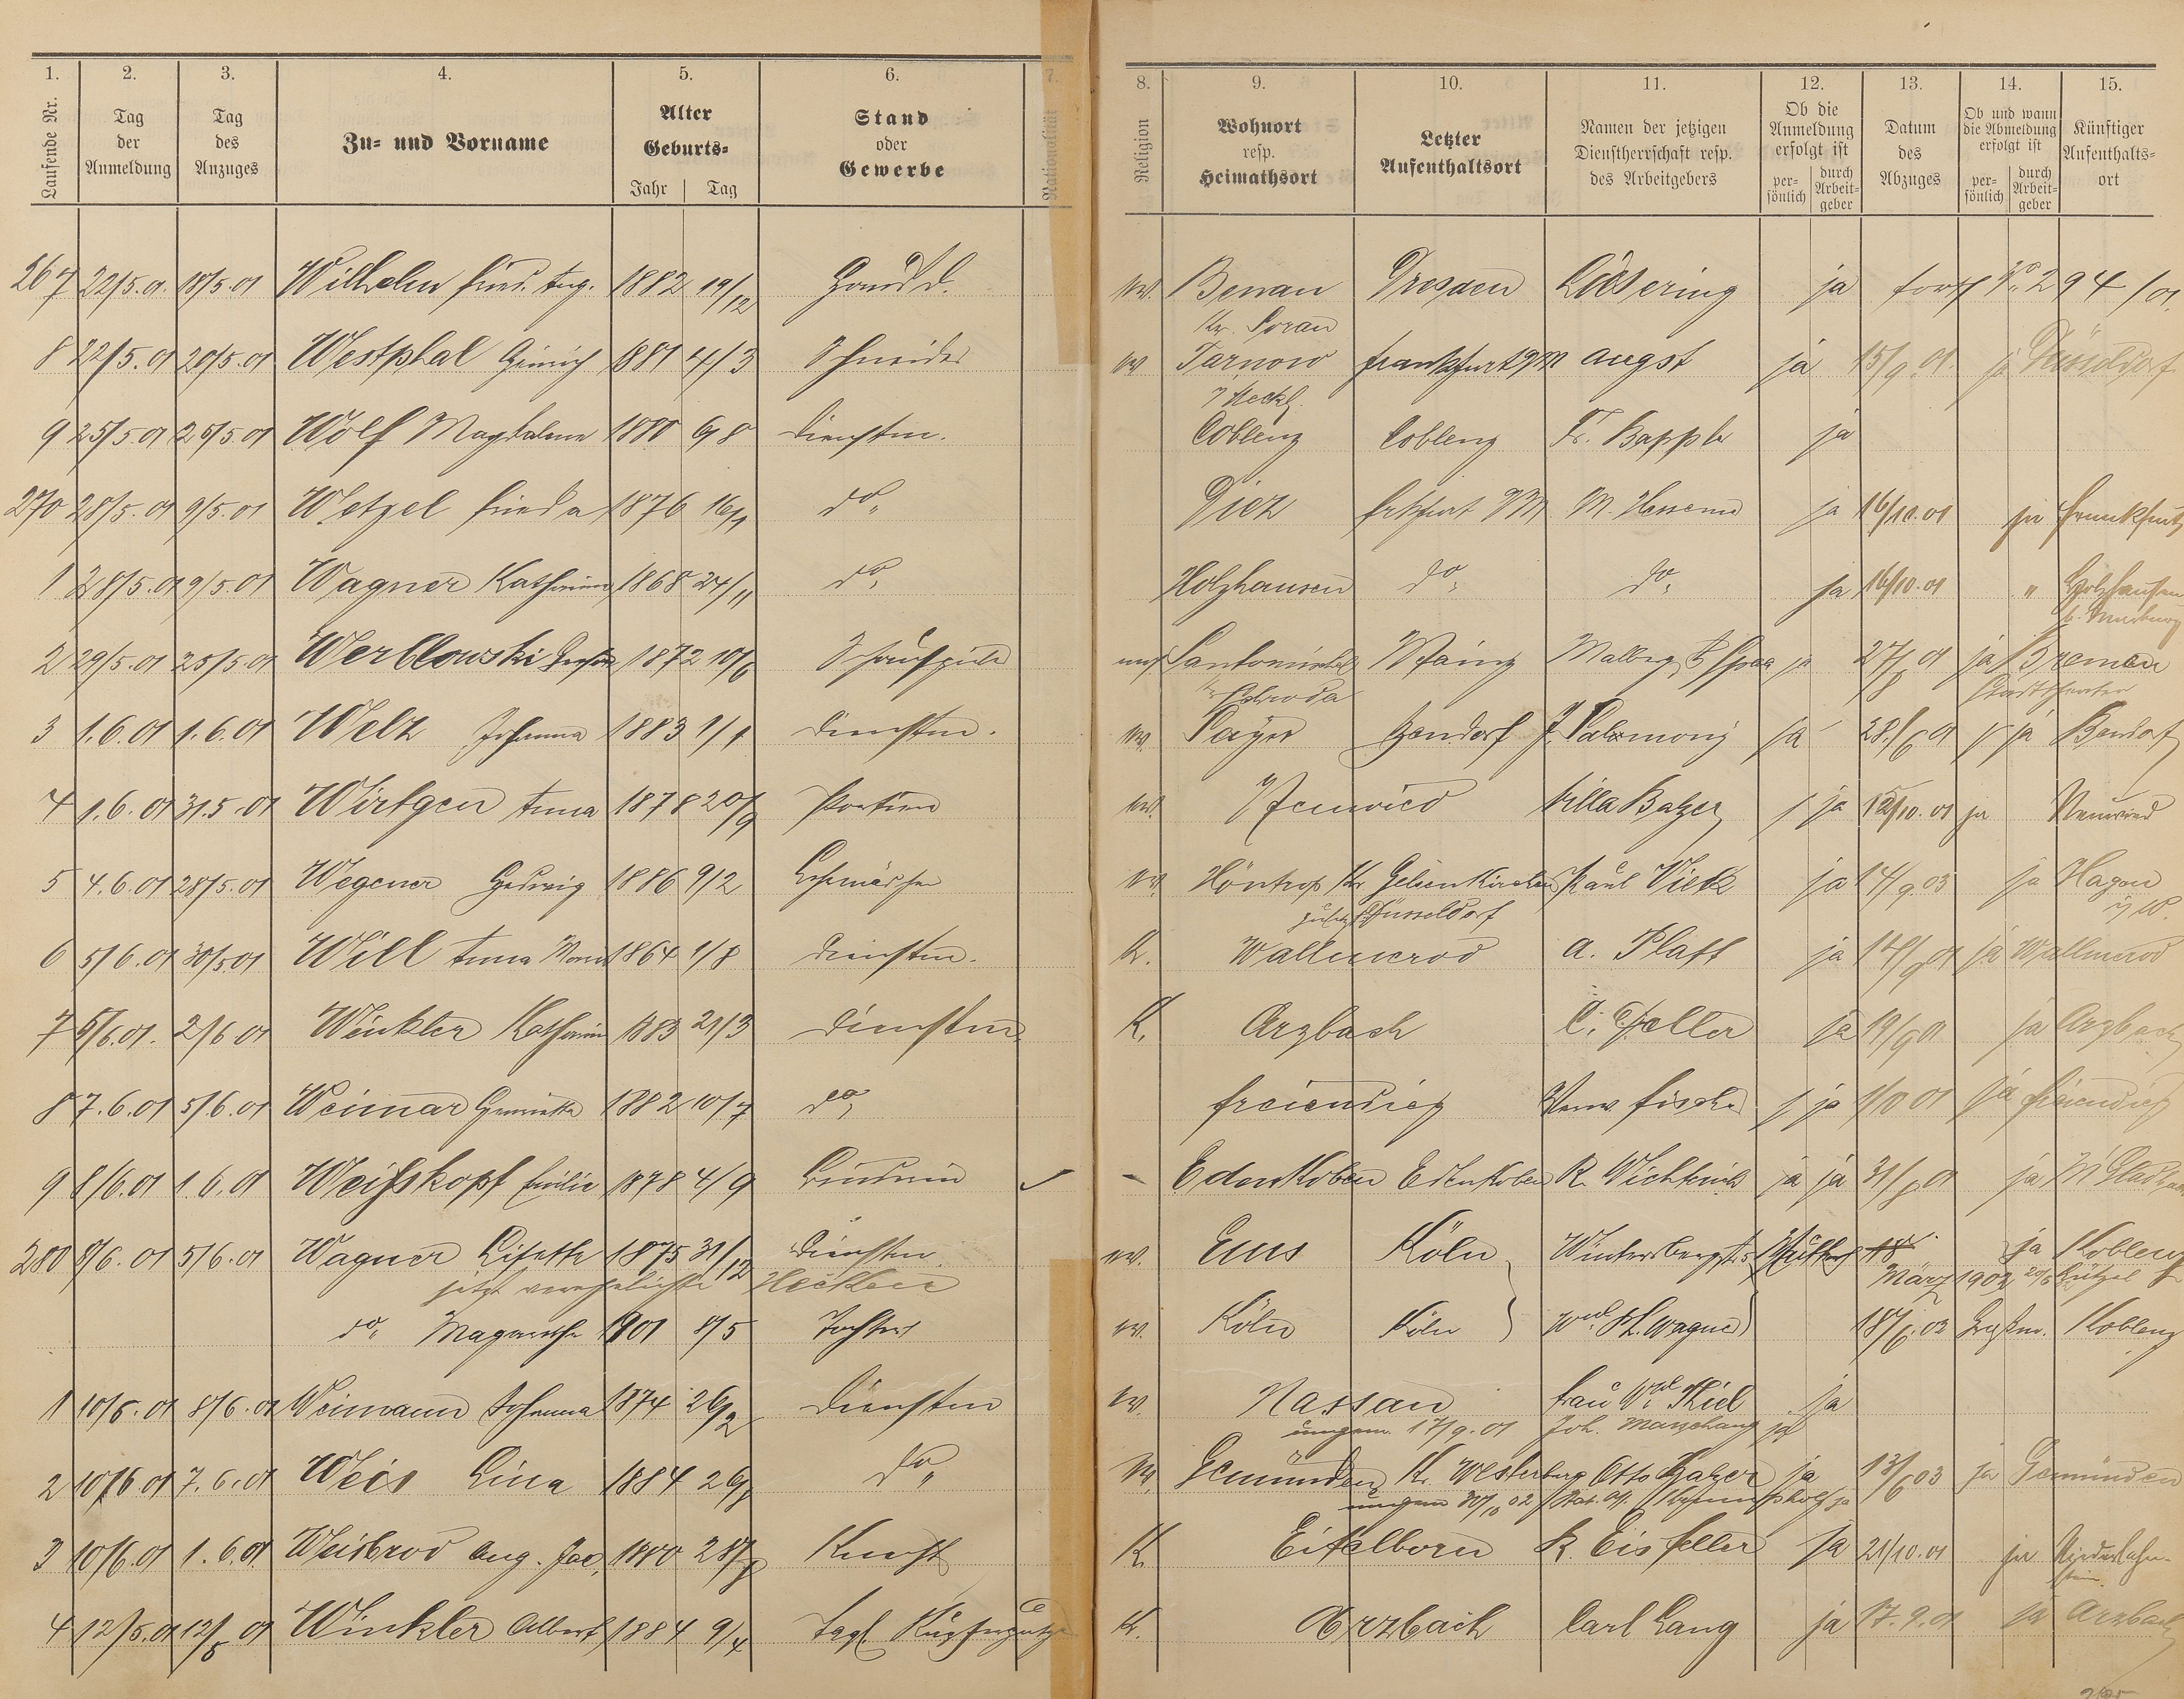 1. 2. 3. 4. 5. 6. 7. 8. 9. 10. 11. 12. 13. 14. 15.
Laufende Nr. Tag der Anmeldung Tag des Anzuges Zu- und Vorname Alter Geburts- Jahr Tag Stand oder Gewerbe Nationalität Religion Wohnort resp. Heimathsort Letzter Aufenthaltsort Namen der jetzigen Dienstherrschaft resp. des Arbeitgebers Ob die Anmeldung erfolgt ist persönlich durch Arbeitgeber Datum des Abzuges Ob und wann die Abmeldung erfolgt ist persönlich durch Arbeitgeber Künftiger Aufenthaltsort
267 22/5.01. 18/5.01 Wilhelm Aug. 1882 19/12 Hausd. ev. Benau Dresden ja 294/01.
Kr. Sorau
8 22/5.01 20/5.01 Westphal Heinrich 1881 4/3 Schneider ev Tarnow Frankfurt a/M Augst ja 15/9.01. ja Düsseldorf
i/Meckl.
9 25/5.01 25/5.01 Wolf Magdalena 1880 6/8 Dienstm. Coblenz Coblenz Fr. Bappler ja
270 28/5.01 9/5.01 Wetzel Frieda 1876 16/1 do. Diez Frkfurt a/M M. ja 16/10.01 ja Frankfurt
1 28/5.01 9/5.01 Wagner Katharina 1868 24/11 do. Holzhausen do. do. ja 16/10.01 " Holzhausen
2 29/5.01 25/5.01 Werblowski 1872 10/6 Schauspieler mos. Mainz Malberg ja 27/8 01 ja Bremen
Stadttheater
3 1.6.01 1.6.01 Welz Johanna 1883 1/1 Dienstm. ev. Sayn Bendorf J. Salomony ja 28/6 01 ja Bendorf
4 1.6.01 31.5.01 Wirtgen Anna 1878 20/9 ev. Neuwied Villa Balzer ja 12/10.01 ja Neuwied
5 4.6.01 28/5.01 Wegener Hedwig 1886 9/2 ev. Höntrop Kr Gelsenkirchen Paul Vietz ja 14/9.03 ja Hagen
Düsseldorf i/W.
6 5/6.01 30/5 01 Will Anna Maria 1864 1/8 Dienstm. K. Wallmerod A. Platt ja 14/9 01 ja Wallmerod
7 5/6.01. 2/6 01 Winkler Katharina 1883 21/3 Dienstm. K. Arzbach ja 19/9 01 ja Arzbach
8 7.6.01 5/6.01 Weimar Henriette 1882 10/7 do. Freiendiez Fischer ja 1/10 01 ja Freiendiez
9 8/6.01 1.6.01 Weißkopf Emilie 1878 4/9 - Edenkoben Edenkoben R. Wichtrich ja ja 31/8 01 ja M'Gladbach
280 8/6.01 5/6.01 Wagner Lisette 1875 31/12 Dienstm. ev. Ems Köln Wintersbergstr 5 18 ja Koblenz
jetzt verehelichte März 1902 Lützel
do. Magarethe 1901 8/5 Tochter ev. Köln Köln Wwe Ph. Wagner 18/6.02 Koblenz
1 10/6.01 8/6.01 Weimann Johanna 1874 26/2 Dienstm ev. Nassau Frau Wwe Thiel ja
umgem. 17/9.01 Joh. ja
2 10/6 01 7.6.01 Weis Lina 1884 26/8 do. ev. Gemünden Kr. Westerburg Otto Balzer ja 13/6 03 ja Gemünden
umgem 30/10 02 ja
3 10/6.01 1.6.01. Weisbrod Aug. Jac. 1880 28/8 Knecht K. Eitelborn R Eisfeller ja 21/10.01 ja Niederlahnstein.
4 12/5.01 12/5 01 Winkler Albert 1884 9/4 K. Arzbach Carl Lang ja 17.9.01 ja Arzbach